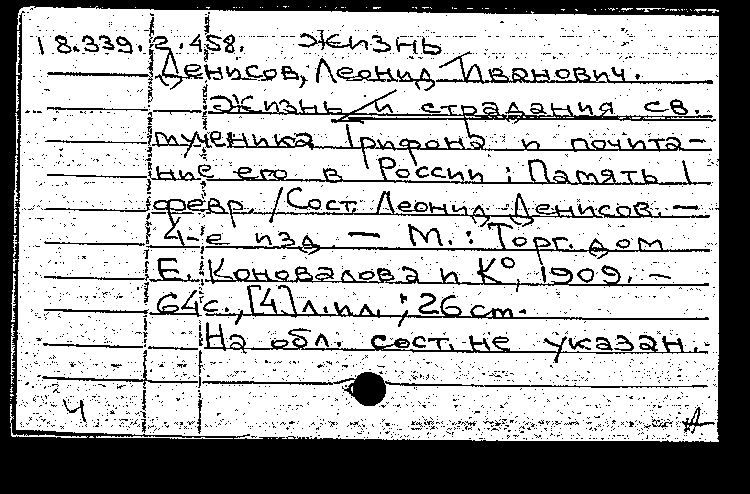 18.339.2.458. Жизнь
Денисов, Леонид Иванович.
Жизнь и страдания св.
мученика Трифона и почита-
ние его в России : Память 1
февр. / Сост. Леонид Денисов. —
4-е изд — М. : Торг. дом
Е. Коновалова и К°, 1909. —
64с., [4] л.ил. ; 26 см.
На обл. сост. не указан.
Ч